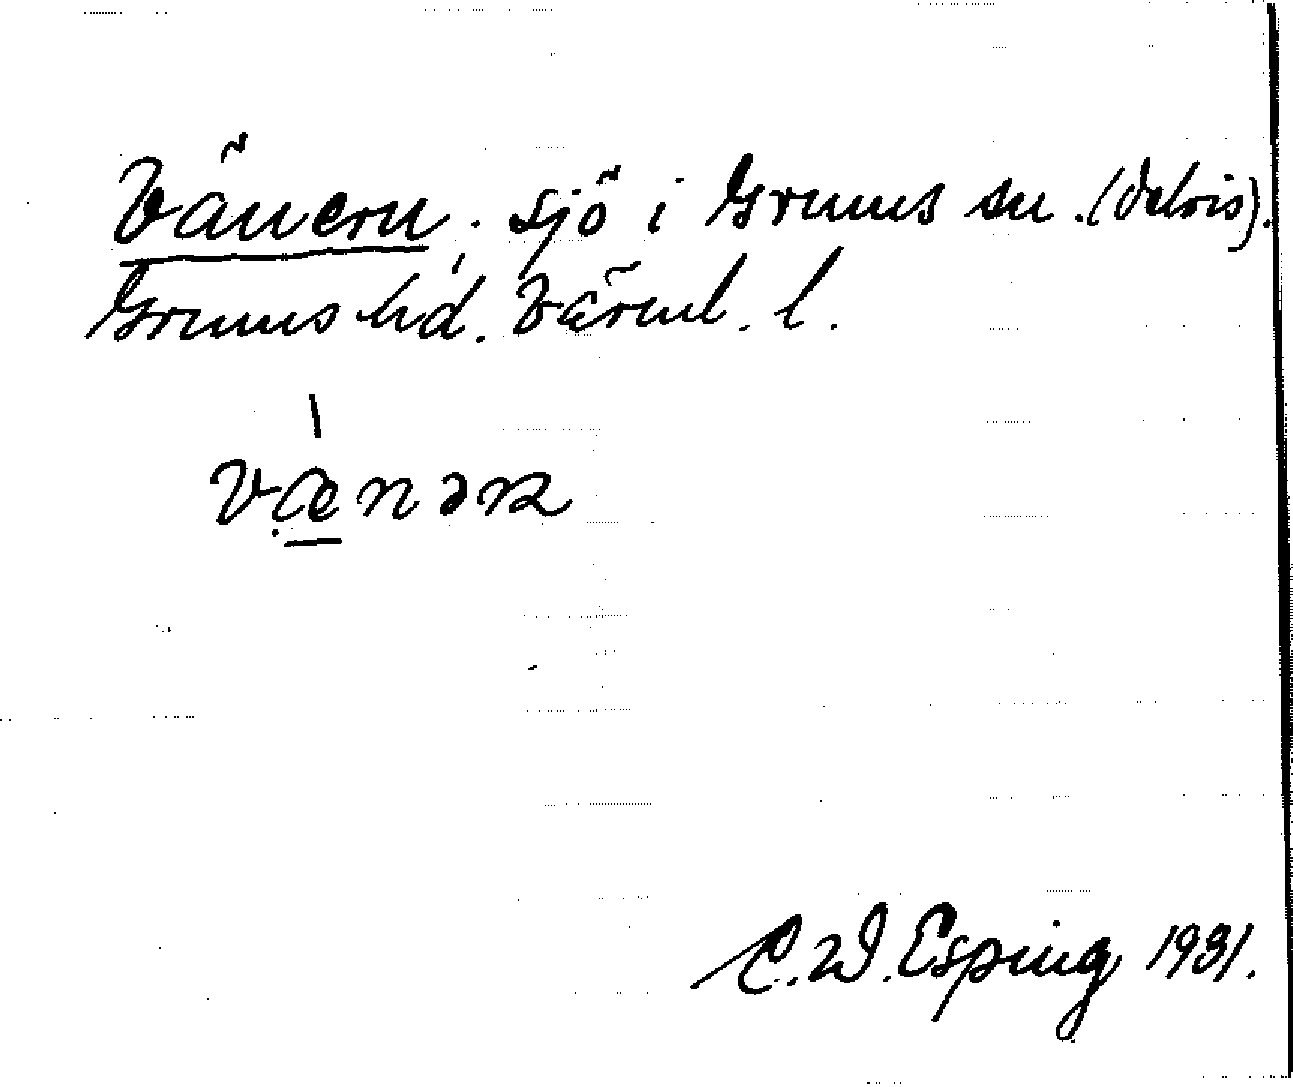 Vänern, sjö i Grums sn. (delvis).
Grums hd. Värml. l.
vænəʀ
C. W. Esping 1931.